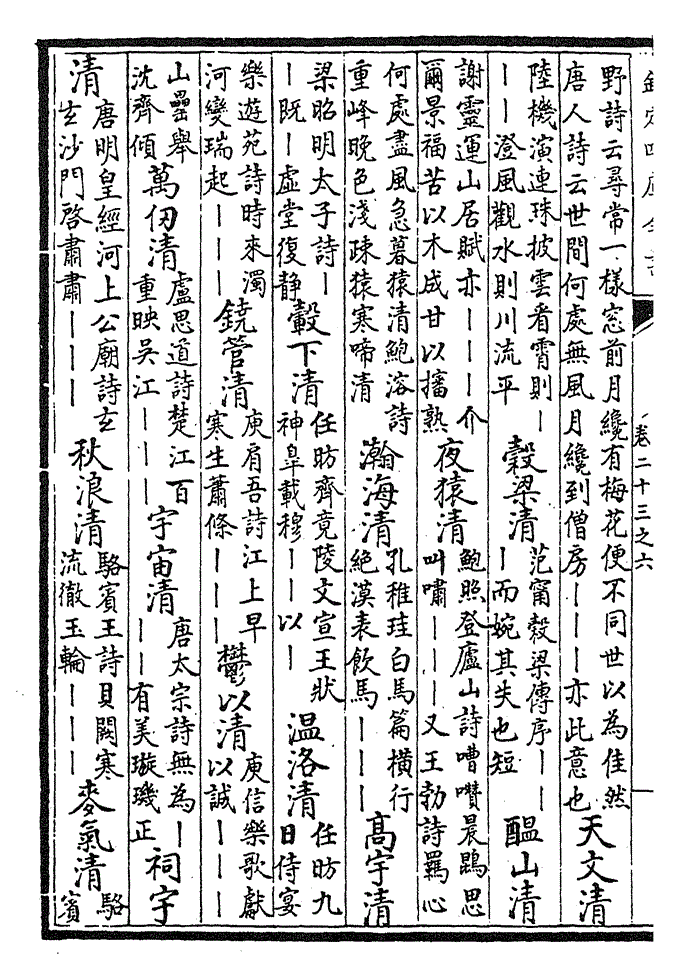 欽定四庫全書
卷二十三之六
野詩云尋常一樣窓前月纔有梅花便不同世以為佳然唐人詩云世間何處無風月纔到僧房｜｜｜亦此意也天文清
陸機演連珠披雲看霄則｜｜｜澄風觀水則川流平穀梁清范甯穀梁傳序｜｜｜而婉其失也短醖山清
謝靈運山居賦亦｜｜｜介爾景福苦以木成甘以㩓熟夜猿清鮑照登廬山詩嘈囋晨鵾思叫嘯｜｜｜又王勃詩羈心
何處盡風急暮猿清鮑溶詩重峰晚色淺疎猿寒啼清瀚海清孔稚珪白馬篇横行絶漠表飲馬｜｜｜髙宇清
梁昭明太子詩｜｜既｜虚堂復静轂下清任昉齊竟陵文宣王狀神臯載穆｜｜以｜温洛清任昉九日侍宴
樂遊苑詩時來濁河變瑞起｜｜｜鐃管清庾肩吾詩江上早寒生蕭條｜｜｜鬱以清庾信樂歌獻以誠｜｜｜
山罍舉沈齊傾萬仞清盧思道詩楚江百重映吳江｜｜｜宇宙清唐太宗詩無為｜｜｜有美璇璣正祠宇
清唐明皇經河上公廟詩玄玄沙門啓肅肅｜｜｜秋浪清駱賓王詩貝闕寒流徹玉輪｜｜｜麥氣清駱賓